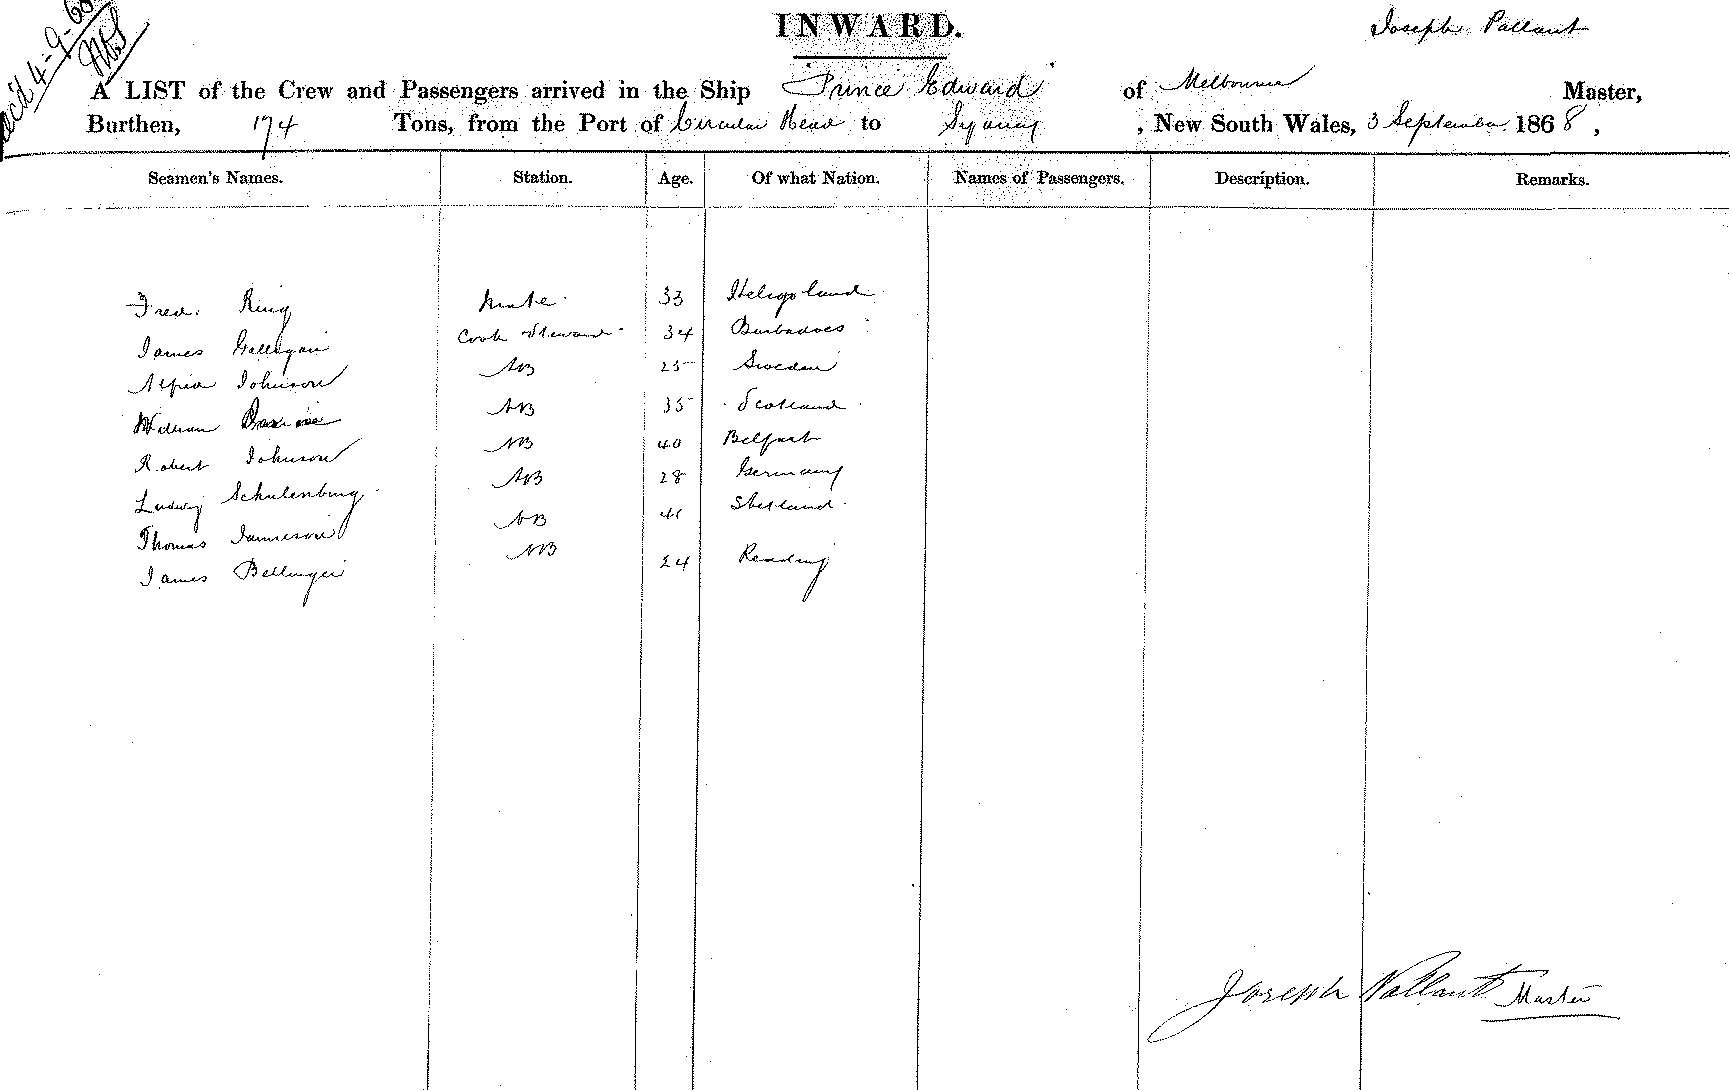 Rec'd 4-9-68
INWARD.
Joseph Pallant
A LIST of the Crew and Passengers arrived in the Ship Prince Edward of Melbourne Master,
Burthen, 174 Tons, from the Port of Circular Head to Sydney, New South Wales, 3 September 1868,
Seamen's Names. Station. Age. Of what Nation. Names of Passengers. Description. Remarks.
Fred. Ring Mate 33 Heligoland
James Gallagan Cook Steward 34 Barbadoes
Alfred Johnson AB 25 Sweden
William AB 35 Scotland
Robert Johnson AB 40 Belfast
Ludwig Schulenburg AB 28 Germany
Thomas Jamieson AB 41 Shetland
James Bellinger AB 24 Reading
Joseph Pallant Master